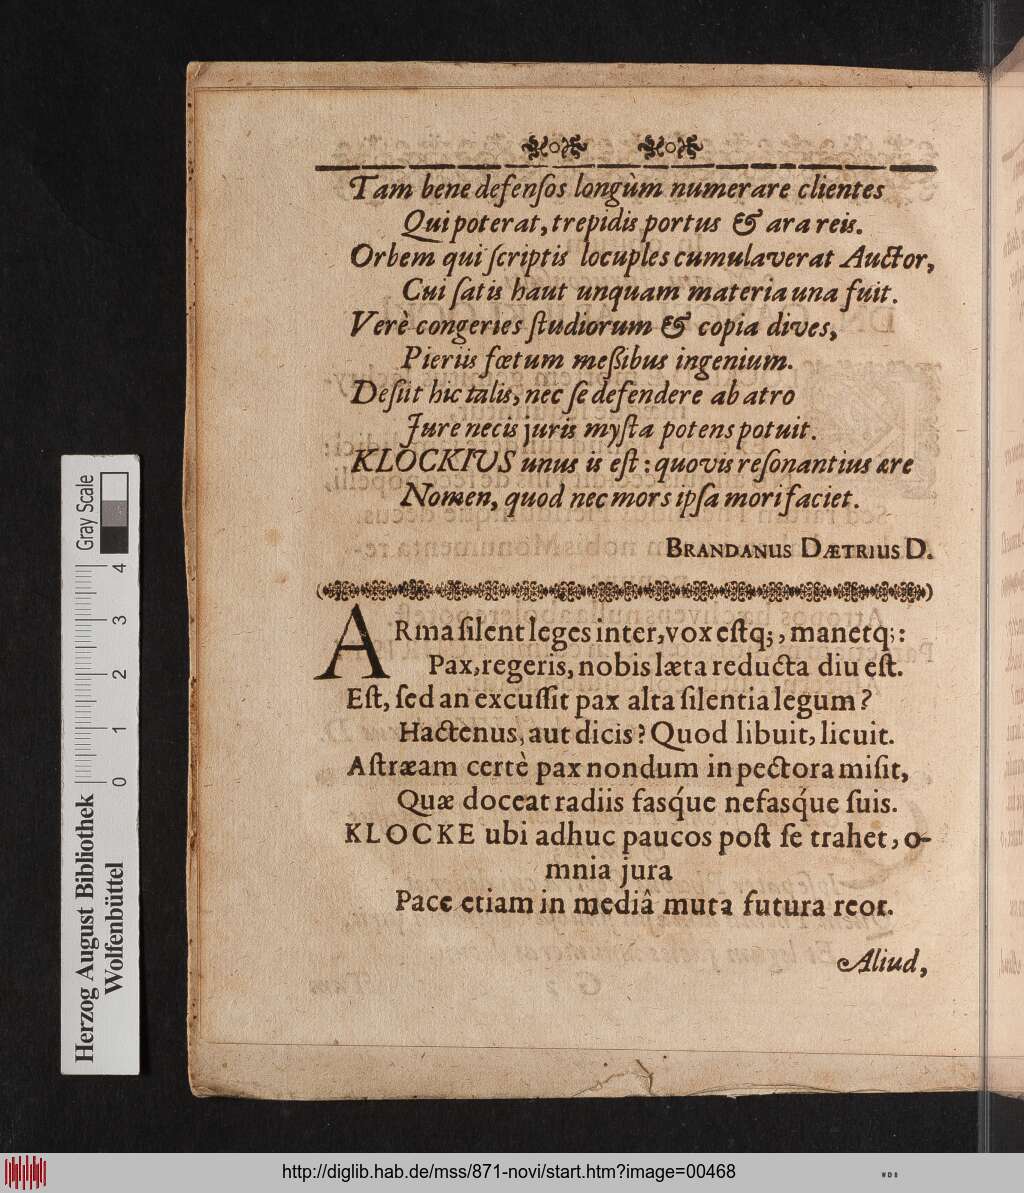 Tam bene defenſos longùm numerare clientes
Qui poterat, trepidis portus & ara reis.
Orbem qui ſcriptis locuples cumulaverat Auctor,
Cui ſatis haut unquam materia una fuit.
Verè congeries ſtudiorum & copia dives,
Pieriis fœtum meßibus ingenium.
Deſiit hic talis, nec ſe defendere ab atro
Jure necis juris myſta potens potuit.
KLOCKIUS unus is eſt: quovis reſonantius ære
Nomen, quod nec mors ipſa mori faciet.
BRANDANUS DÆTRIUS D.
ARma ſilent leges inter, vox eſtq;, manetq;:
Pax, regeris, nobis læta reducta diu eſt.
Eſt, ſed an excuſſit pax alta ſilentia legum?
Hactenus, aut dicis? Quod libuit, licuit.
Aſtræam certè pax nondum in pectora miſit,
Quæ doceat radiis fasq́ue nefasq́ue ſuis.
KLOCKE ubi adhuc paucos poſt ſe trahet, o-
mnia jura
Pace etiam in mediâ muta futura reor.
Aliud,
Herzog August Bibliothek
Wolfenbüttel
0 1 2 3 4
Gray Scale
http://diglib.hab.de/mss/871-novi/start.htm?image=00468
WDB